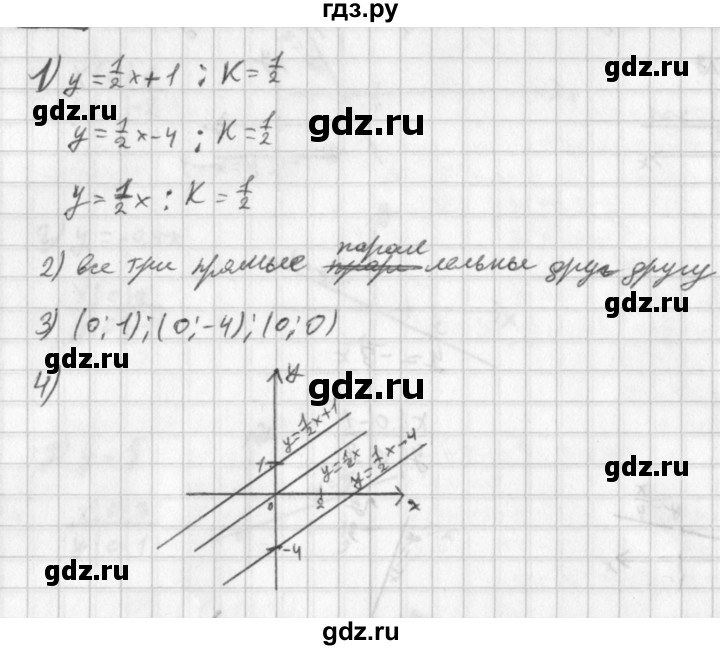 гдз.ру
1) y = 1/2 x + 1 ; K = 1/2
gdz.ru
gdz.ru
gdz.ru
y = 1/2 x - 4 ; K = 1/2
y = 1/2 x ; K = 1/2
парал
2) все три прямые лельны друг другу
gdz.ru
3) (0; 1); (0; -4); (0; 0)
4)
y
gdz.ru
y = 1/2 x + 1
y = 1/2 x
y = 1/2 x - 4
1
gdz.ru
0
2
x
-4
gdz.ru
gdz.ru
gdz.ru